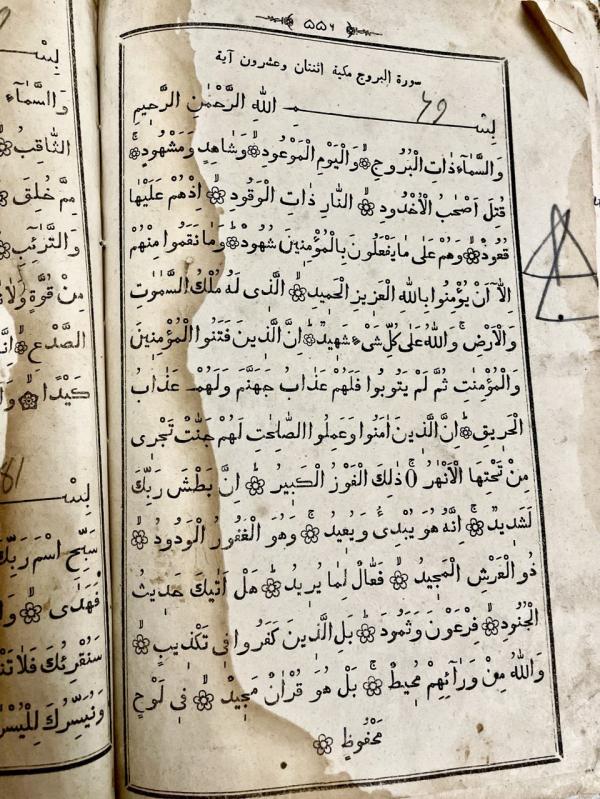 ٥٥٦
سورة البروج مكية اثنتان وعشرون آية
بِسْمِ اللهِ الرَّحْمٰنِ الرَّحِيمِ
وَالسَّمَآءِ ذَاتِ الْبُرُوجِ وَالْيَوْمِ الْمَوْعُودِ وَشَاهِدٍ وَمَشْهُودٍ
قُتِلَ اَصْحَابُ الْاُخْدُودِ النَّارِ ذَاتِ الْوَقُودِ اِذْهُمْ عَلَيْهَا
قُعُودٌ وَهُمْ عَلٰى مَا يَفْعَلُونَ بِالْمُؤْمِنِينَ شُهُودٌ وَمَا نَقَمُوا مِنْهُمْ
اِلَّآ اَنْ يُؤْمِنُوا بِاللهِ الْعَزِيزِ الْحَمِيدِ الَّذِى لَهُ مُلْكُ السَّمٰوٰتِ
وَالْاَرْضِ وَاللهُ عَلٰى كُلِّ شَىْءٍ شَهِيدٌ اِنَّ الَّذِينَ فَتَنُوا الْمُؤْمِنِينَ
وَالْمُؤْمِنٰتِ ثُمَّ لَمْ يَتُوبُوا فَلَهُمْ عَذَابُ جَهَنَّمَ وَلَهُمْ عَذَابُ
الْحَرِيقِ اِنَّ الَّذِينَ اٰمَنُوا وَعَمِلُوا الصَّالِحٰتِ لَهُمْ جَنَّٰتٌ تَجْرِى
مِنْ تَحْتِهَا الْاَنْهٰرُ ذٰلِكَ الْفَوْزُ الْكَبِيرُ اِنَّ بَطْشَ رَبِّكَ
لَشَدِيدٌ اِنَّهُ هُوَ يُبْدِئُ وَيُعِيدُ وَهُوَ الْغَفُورُ الْوَدُودُ
ذُو الْعَرْشِ الْمَجِيدُ فَعَّالٌ لِمَا يُرِيدُ هَلْ اَتٰيكَ حَدِيثُ
الْجُنُودِ فِرْعَوْنَ وَثَمُودَ بَلِ الَّذِينَ كَفَرُوا فِى تَكْذِيبٍ
وَاللهُ مِنْ وَرَآئِهِمْ مُحِيطٌ بَلْ هُوَ قُرْاٰنٌ مَجِيدٌ فِى لَوْحٍ
مَحْفُوظٍ
بِسْ
وَالسَّمَآءِ
الثَّاقِبُ
مِمَّ خُلِقَ
وَالتَّرَآئِبِ
مِنْ قُوَّةٍ وَلَا
الصَّدْعِ
كَيْدًا
81
بِسْ
سَبِّحِ اسْمَ رَبِّكَ
فَهَدٰى
سَنُقْرِئُكَ فَلَا
وَنُيَسِّرُكَ لِلْيُسْ